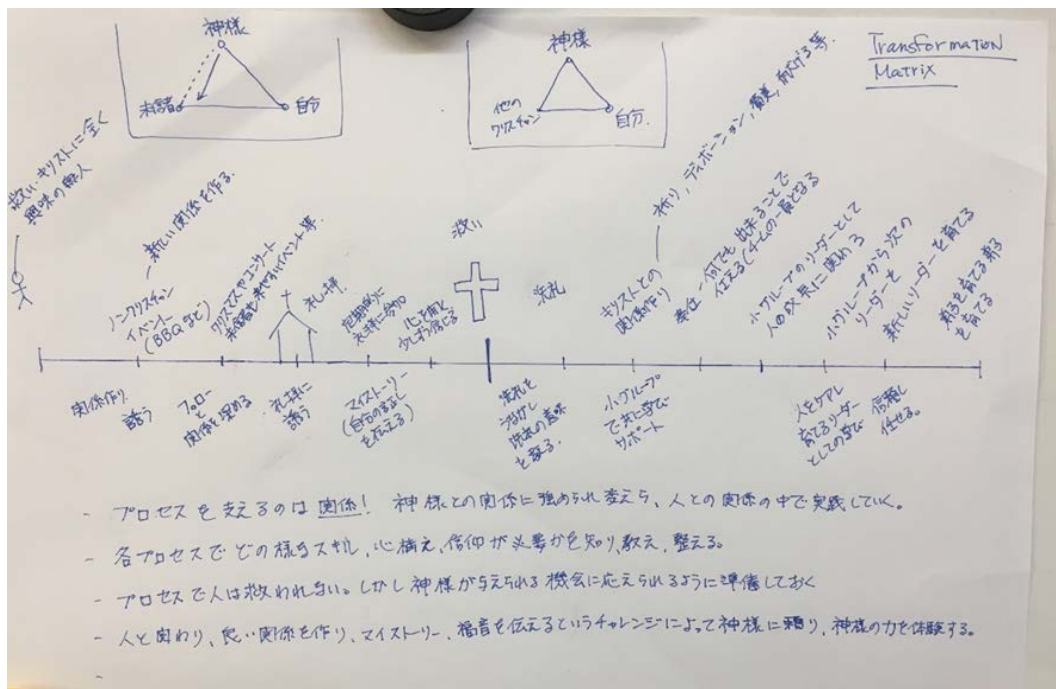 神様
未信者
自分
神様
他の
クリスチャン
自分.
Transformation
Matrix
救い・キリストに全く
興味の無い人
ノンクリスチャン
イベント
(BBQなど)
― 新しい関係を作る.
クリスマスやコンサート
未信者も来やすいイベント等.
礼拝.
定期的に
礼拝に参加
心を開き
少しずつ信じる
救い
洗礼
キリストとの
関係作り
― 祈り, ディボーション, 賛美, 捧げる等.
奉仕 ― 何でも出来ることで
仕える(チームの一員となる
小グループのリーダーとして
人の成長に関わる
小グループから次の
リーダーを
新しいリーダーを育てる
弟子を育てる弟子
を育てる
関係作り
誘う
フォロー
と
関係を深める
礼拝に
誘う
マイストーリー
(自分の証し
を伝える)
洗礼を
うながし
洗礼の意味
を教る.
小グループ
で共に学び
サポート
人をケアし
育てるリーダー
としての学び
信頼し
任せる。
- プロセスを支えるのは関係! 神様との関係に強められ変えら、人との関係の中で実践していく。
- 各プロセスでどの様なスキル、心構え、信仰が必要かを知り、教え、整える。
- プロセスで人は救われない。しかし神様が与えられる機会に応えられるように準備しておく
- 人と関わり、良い関係を作り、マイストーリー、福音を伝えるというチャレンジによって神様に頼り、神様の力を体験する。
-